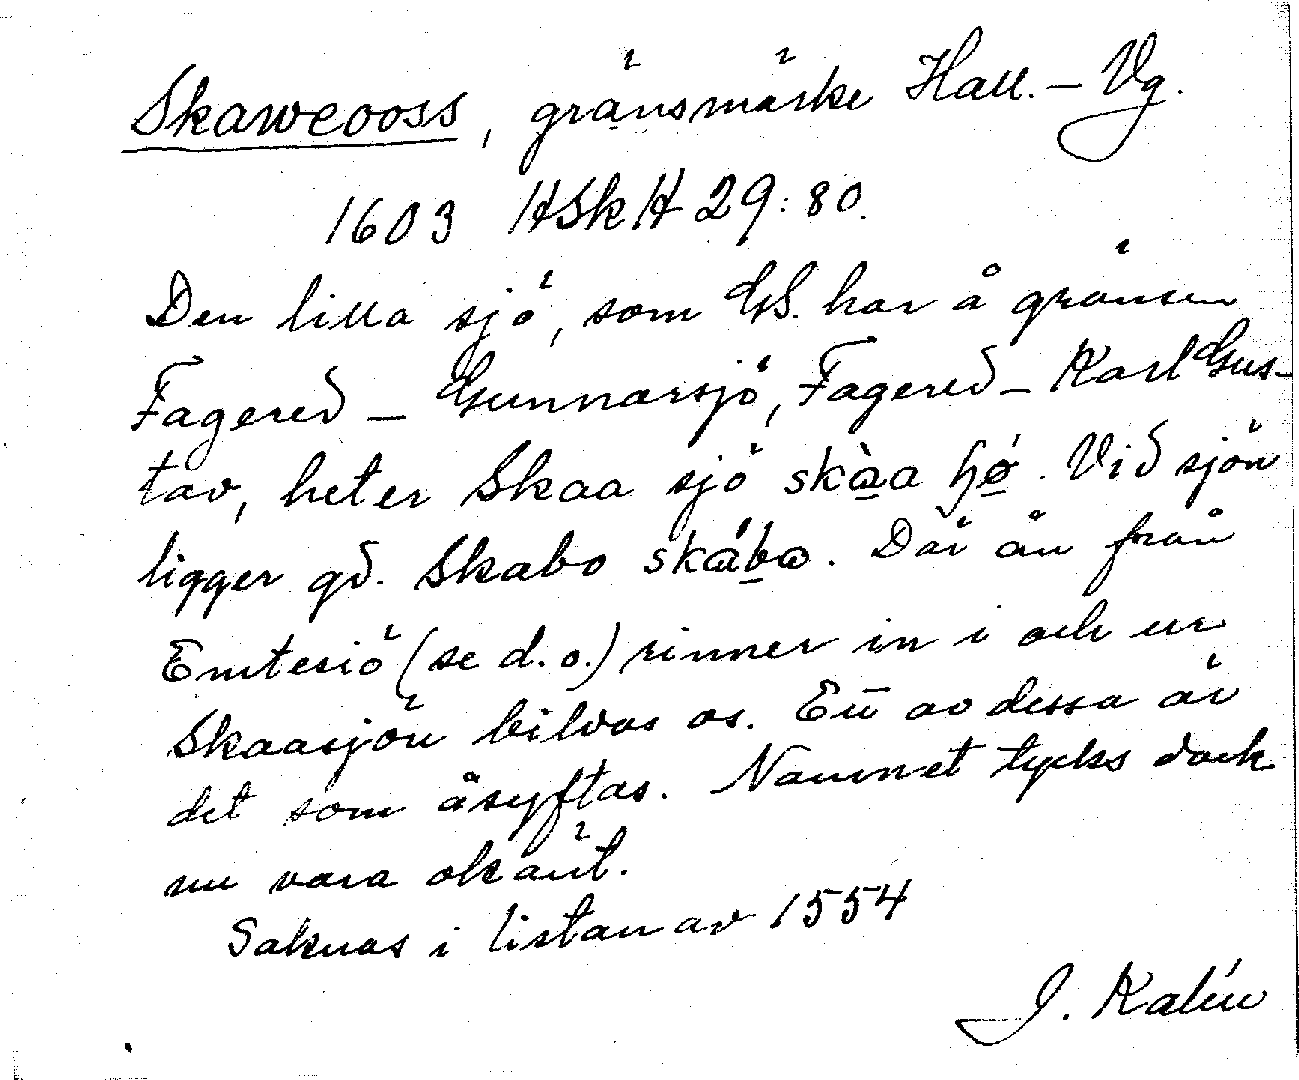 Skaweooss, gränsmärke Hall. – Vg.
1603 HSkH 29:80.
Den lilla sjö, som GS. har å gränsen
Fagered – Gunnarsjö, Fagered – Karl Gus-
tav, heter Skaa sjö skàa ɧǿ. Vid sjön
ligger gd. Skabo skábo. Där ån från
Emtesjö (se d.o.) rinner in i och ur
Skaasjön bildas os. Ett av dessa är
det som åsyftas. Namnet tycks dock
nu vara okänt.
Saknas i listan av 1554
J. Kalén